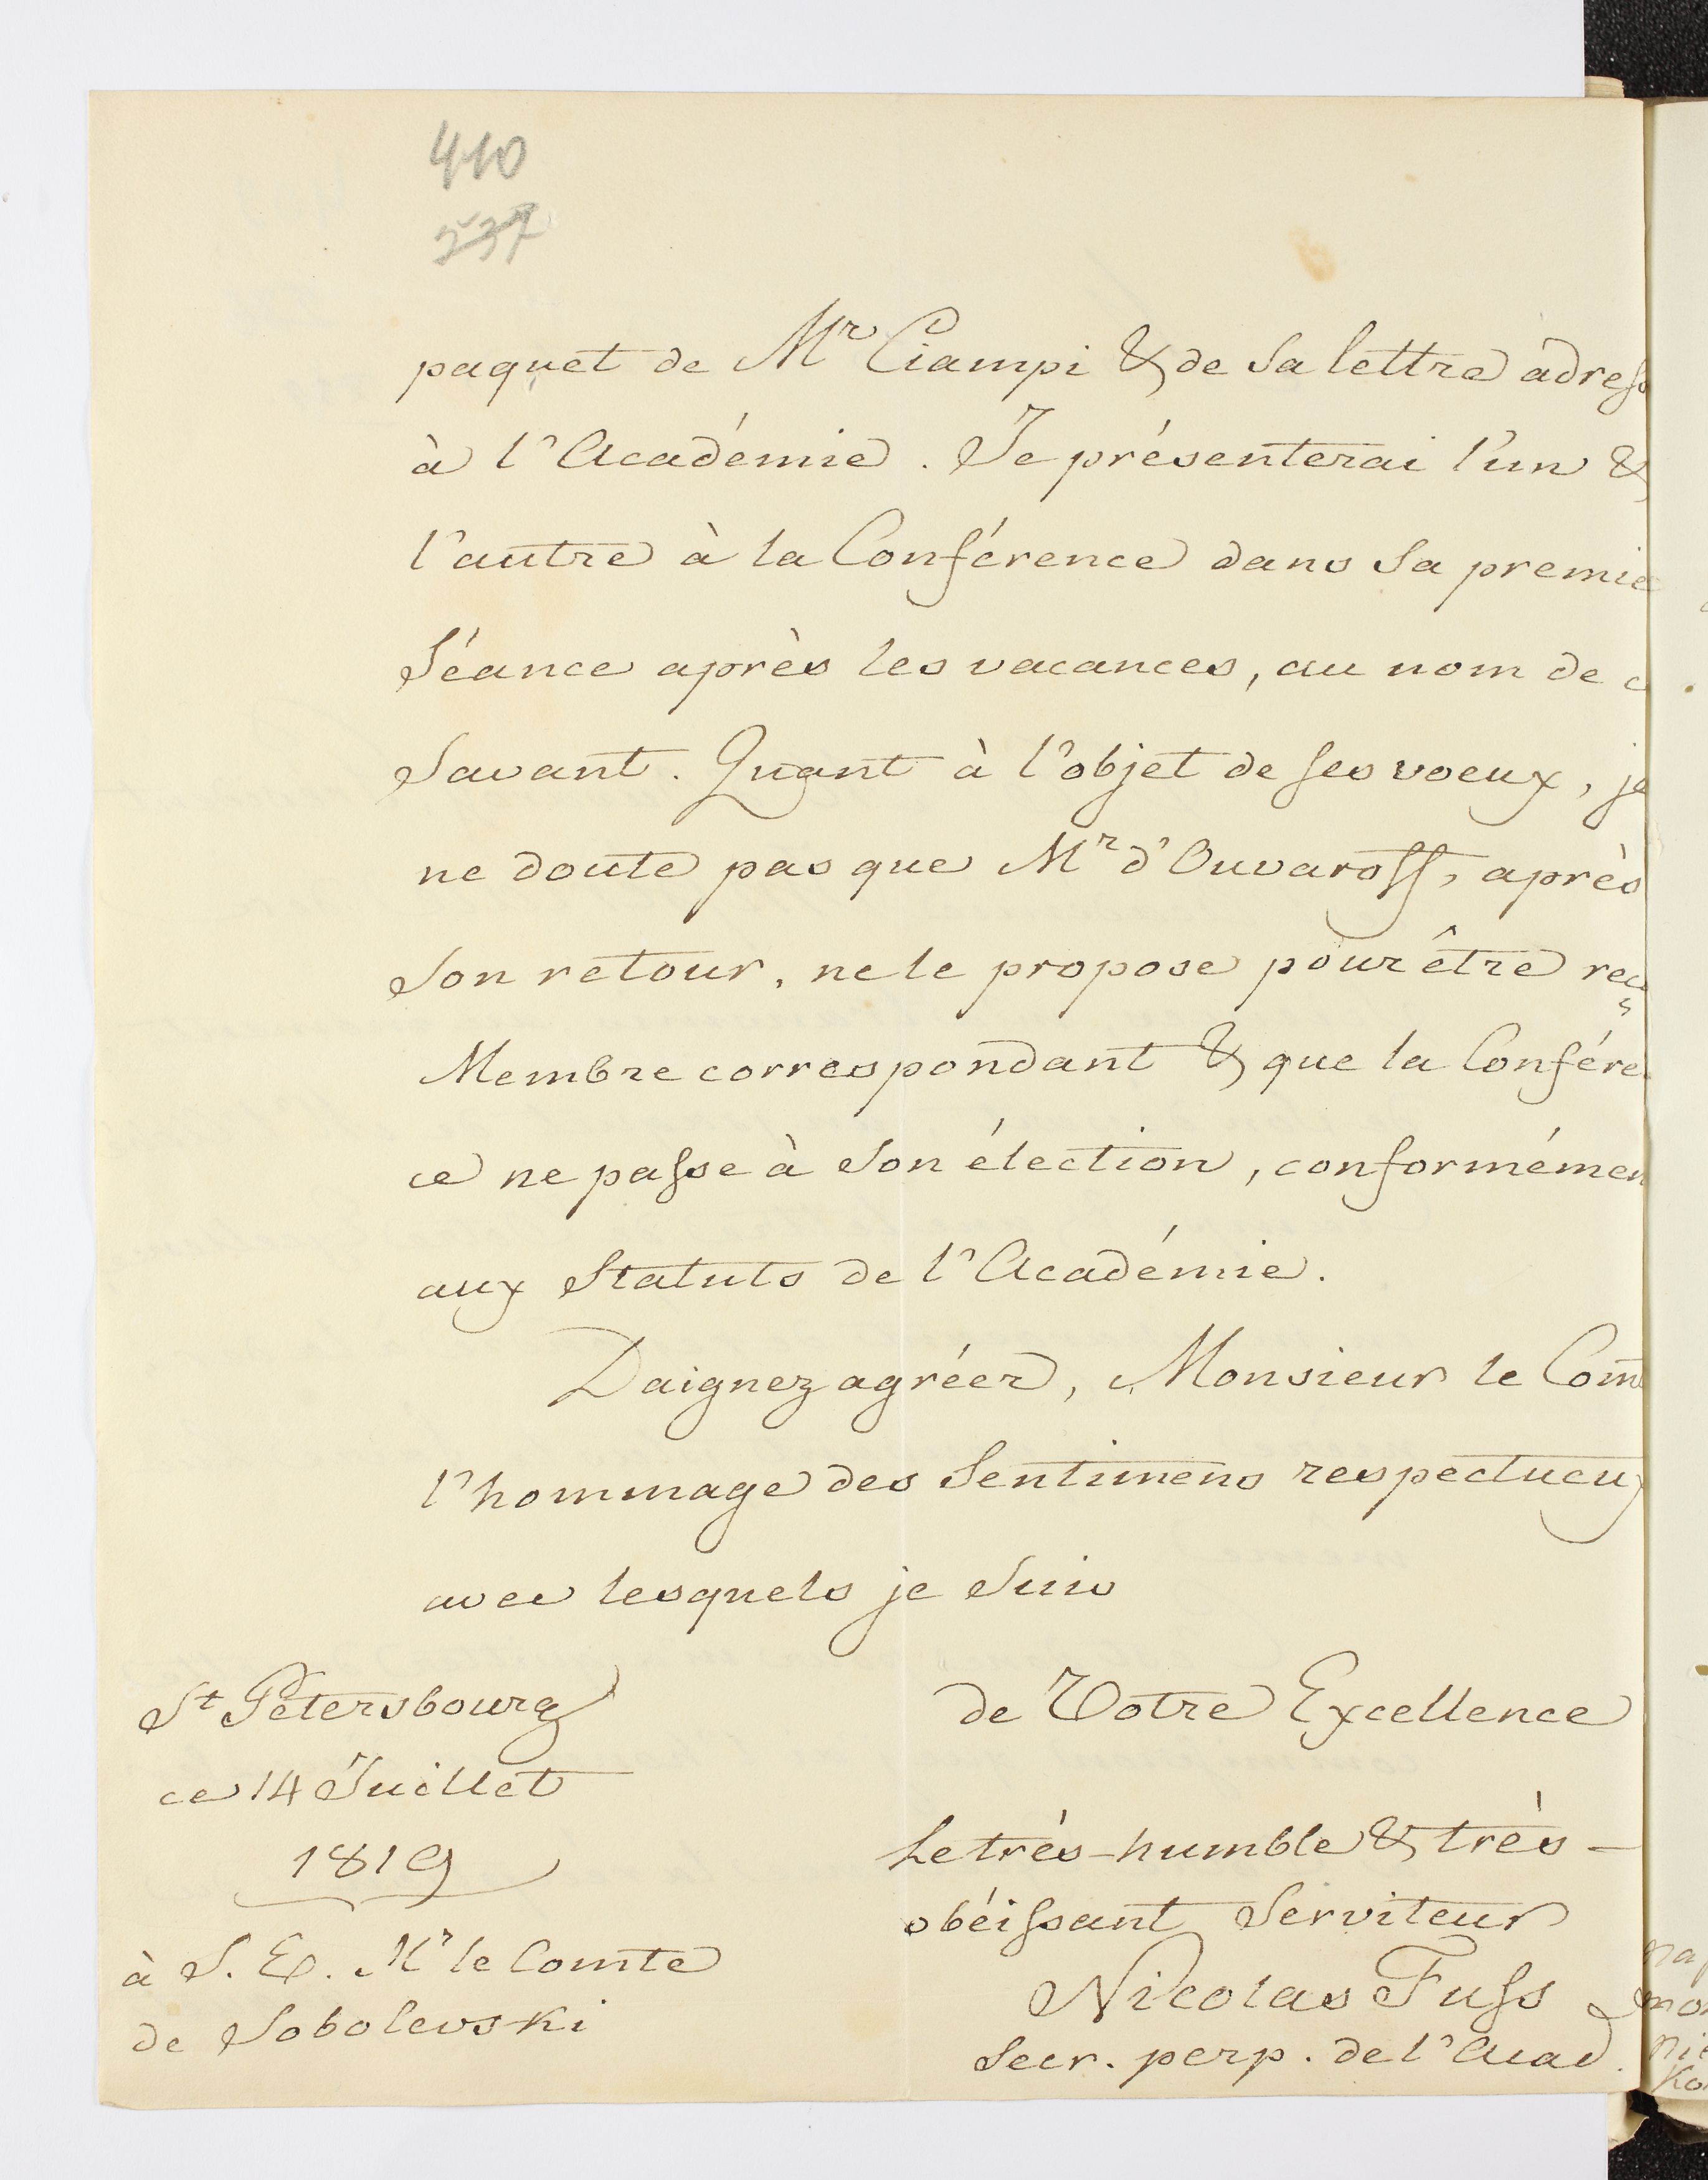 410
237
paquet de Mr Ciampi & de sa lettre adress
à l'Académie. Je présenterai l'un &
l'autre à la Conférence dans sa premiè
Séance après les vacances, au nom de c
Savant. Quant à l'objet de ses voeux, je
ne doute pas que Mr d'Ouvaroff, après
son retour, ne le propose pour être reçu
Membre correspondant & que la Confére
ce ne passe à son élection, conformémen
aux Statuts de l'Académie.
Daignez agréer, Monsieur le Com
l'hommage des Sentimens respectueux
avec lesquels je suis
de Votre Excellence
Le très-humble & très-
obéissant Serviteur
Nicolas Fuss
Secr. perp. de l'Acad.
St Pétersbourg
ce 14 Juillet
1819
à S. E. Mr le Comte
de Sobolevski